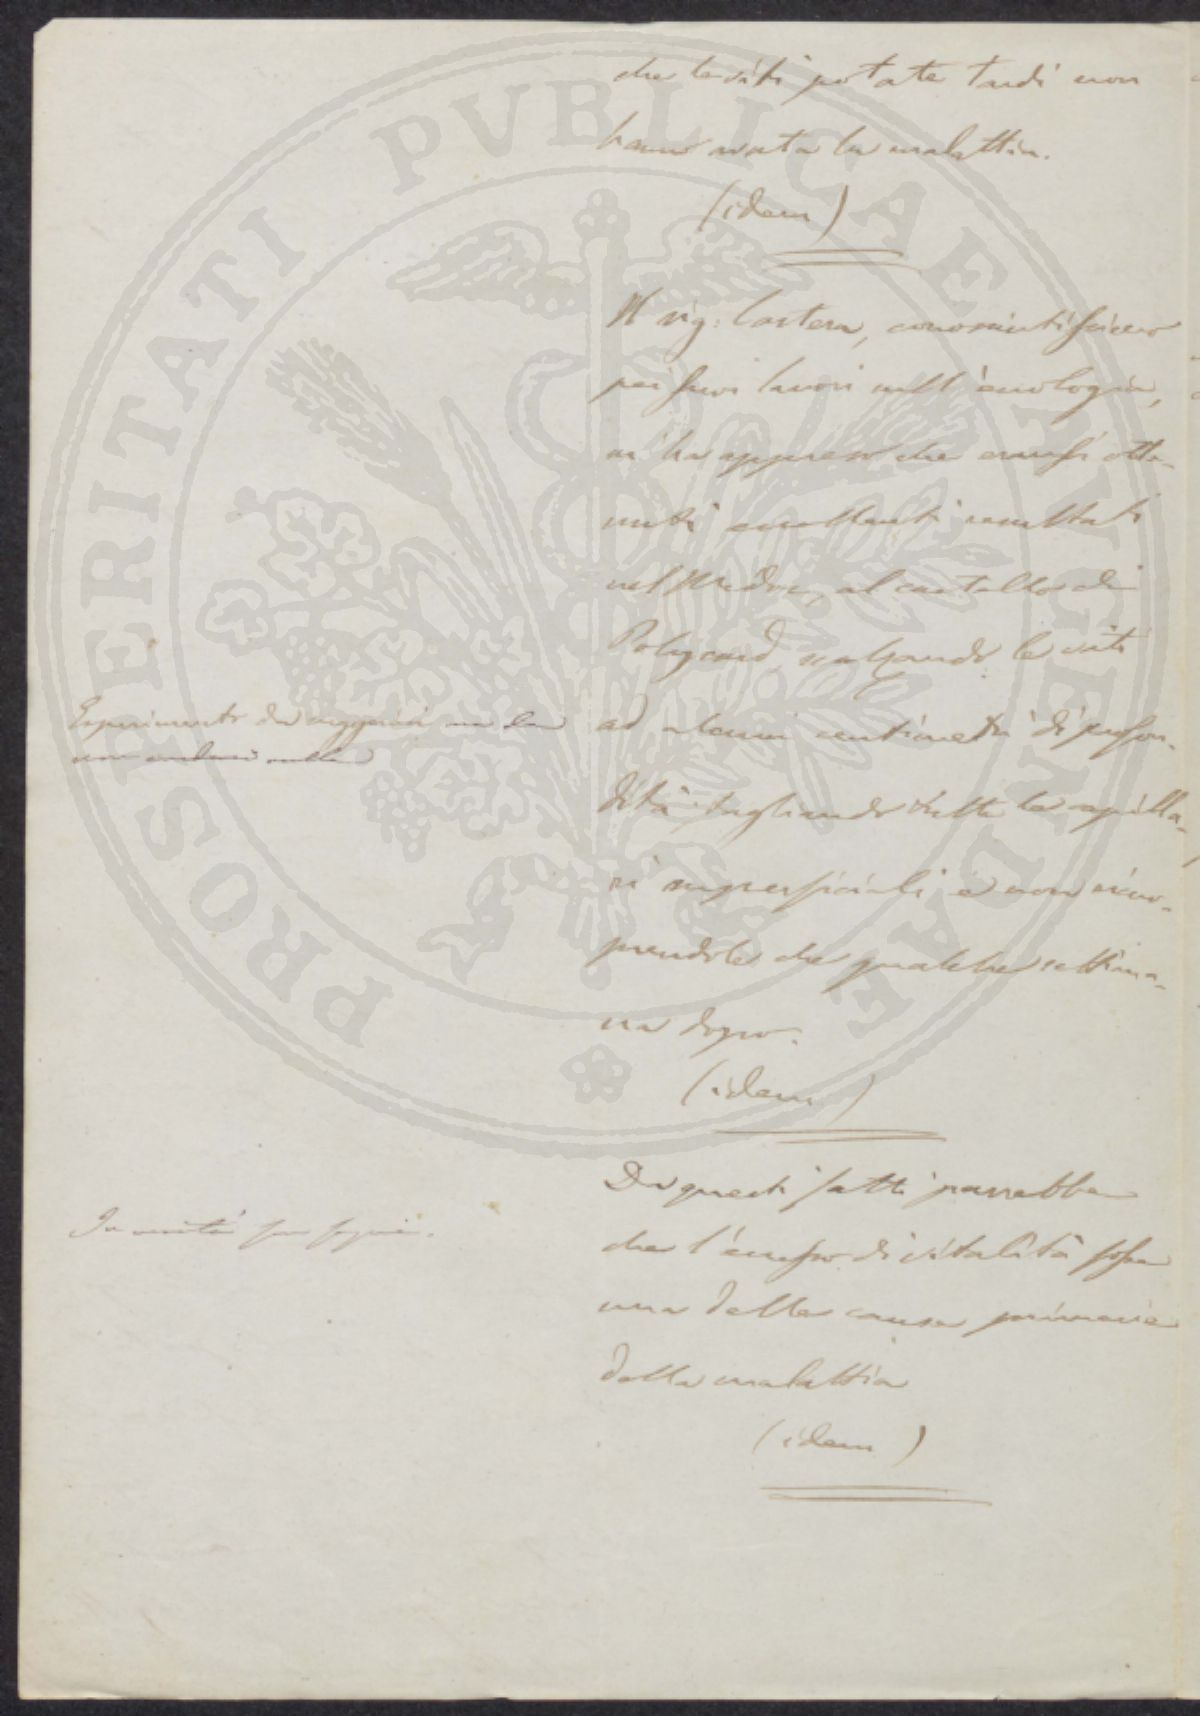 che le viti potate tardi non
hanno avuta la malattia.
(idem)
Il sig: Lartera, conosciutissimo
pei suoi lavori nell'enologia,
ci ha appreso che eransi otte-
nuti eccellenti resultati
nel Medoc, al castello di
scalzando le viti
ad alcuni centimetri di profon-
dità, tagliando tutte le capilla-
ri superficiali e non rico-
prendole che qualche settima-
na dopo.
(idem)
Esperimento da
non
Da questi fatti parrebbe
che l'eccesso di vitalità fosse
una delle cause primarie
della malattia
(idem)
PROSPERITATI PVBLICAE AVGENDAE